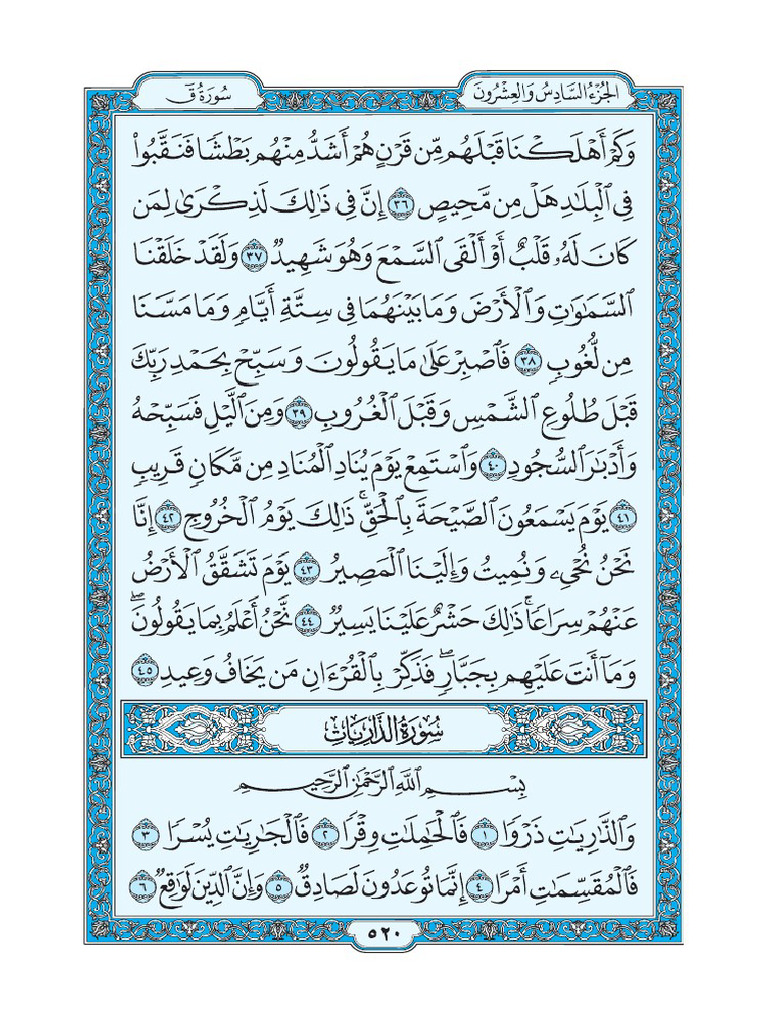 الجُزْءُ السَّادِسُ وَالعِشْرُونَ
سُورَةُ قٓ
وَكَمْ أَهْلَكْنَا قَبْلَهُم مِّن قَرْنٍ هُمْ أَشَدُّ مِنْهُم بَطْشًا فَنَقَّبُوا۟
فِى ٱلْبِلَٰدِ هَلْ مِن مَّحِيصٍ ٣٦ إِنَّ فِى ذَٰلِكَ لَذِكْرَىٰ لِمَن
كَانَ لَهُۥ قَلْبٌ أَوْ أَلْقَى ٱلسَّمْعَ وَهُوَ شَهِيدٌ ٣٧ وَلَقَدْ خَلَقْنَا
ٱلسَّمَٰوَٰتِ وَٱلْأَرْضَ وَمَا بَيْنَهُمَا فِى سِتَّةِ أَيَّامٍ وَمَا مَسَّنَا
مِن لُّغُوبٍ ٣٨ فَٱصْبِرْ عَلَىٰ مَا يَقُولُونَ وَسَبِّحْ بِحَمْدِ رَبِّكَ
قَبْلَ طُلُوعِ ٱلشَّمْسِ وَقَبْلَ ٱلْغُرُوبِ ٣٩ وَمِنَ ٱلَّيْلِ فَسَبِّحْهُ
وَأَدْبَٰرَ ٱلسُّجُودِ ٤٠ وَٱسْتَمِعْ يَوْمَ يُنَادِ ٱلْمُنَادِ مِن مَّكَانٍ قَرِيبٍ
٤١ يَوْمَ يَسْمَعُونَ ٱلصَّيْحَةَ بِٱلْحَقِّ ۚ ذَٰلِكَ يَوْمُ ٱلْخُرُوجِ ٤٢ إِنَّا
نَحْنُ نُحْىِۦ وَنُمِيتُ وَإِلَيْنَا ٱلْمَصِيرُ ٤٣ يَوْمَ تَشَقَّقُ ٱلْأَرْضُ
عَنْهُمْ سِرَاعًا ۚ ذَٰلِكَ حَشْرٌ عَلَيْنَا يَسِيرٌ ٤٤ نَّحْنُ أَعْلَمُ بِمَا يَقُولُونَ ۖ
وَمَآ أَنتَ عَلَيْهِم بِجَبَّارٍ ۖ فَذَكِّرْ بِٱلْقُرْءَانِ مَن يَخَافُ وَعِيدِ ٤٥
سُورَةُ الذَّارِيَاتِ
بِسْمِ ٱللَّهِ ٱلرَّحْمَٰنِ ٱلرَّحِيمِ
وَٱلذَّٰرِيَٰتِ ذَرْوًا ١ فَٱلْحَٰمِلَٰتِ وِقْرًا ٢ فَٱلْجَٰرِيَٰتِ يُسْرًا ٣
فَٱلْمُقَسِّمَٰتِ أَمْرًا ٤ إِنَّمَا تُوعَدُونَ لَصَادِقٌ ٥ وَإِنَّ ٱلدِّينَ لَوَٰقِعٌ ٦
٥٢٠